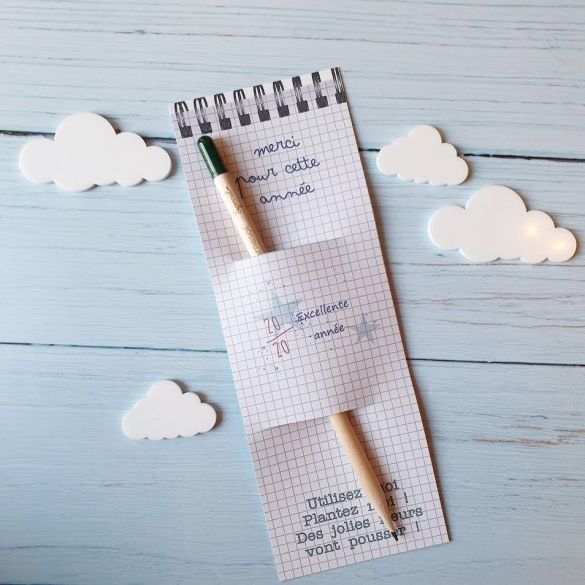 merci
pour cette
année
20
20
Excellente
année
Utilisez moi
Plantez moi !
Des jolies fleurs
vont pousser !